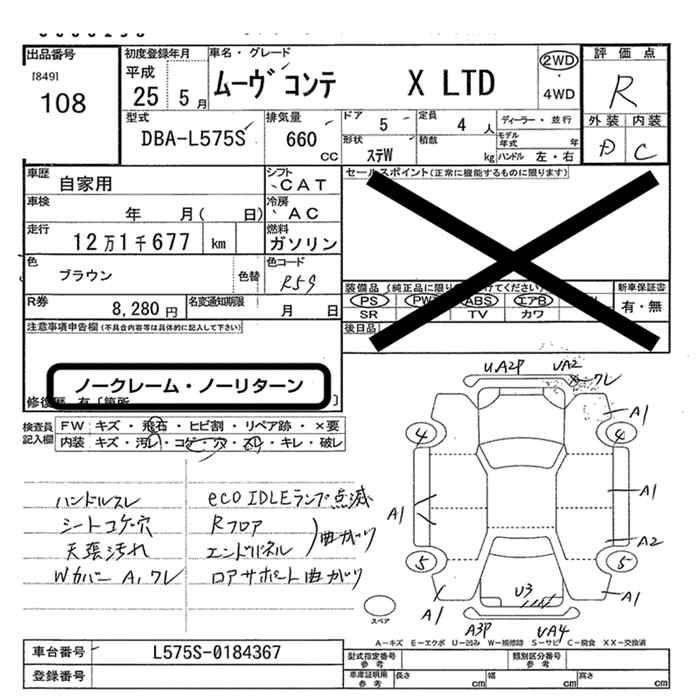 出品番号
[849]
108
初度登録年月
平成
25 5月
車名・グレード
ムーヴ コンテ X LTD
2WD
・
4WD
評価点
R
外装 内装
D C
型式
DBA-L575S
排気量
660
CC
ドア
5
定員
4 人
ディーラー・並行
形状
ステW
積載
kg
モデル年式
年
ハンドル 左・右
車歴
自家用
シフト
CAT
車検
年 月( 日)
冷房
AC
走行
12万1千677 km
燃料
ガソリン
色
ブラウン
色替
色コード
R59
R券
8,280 円
名変通知期限
月 日
セールスポイント(正常に機能するものに限ります)
装備品 (純正品に限り
けてください)
PS PW ABS エアB
SR TV カワ
後日品
新車保証書
有・無
注意事項申告欄 (不具合内容等は具体的に記入して下さい)
ノークレーム・ノーリターン
修復歴 有 [箇所 ]
検査員記入欄
FW キズ・飛石・ヒビ割・リペア跡・×要
内装 キズ・汚レ・コゲ・穴・スレ・キレ・破レ
ハンドルスレ
シートコゲ・穴
天張汚れ
Wカバー A1ワレ
eco IDLEランプ点滅
Rフロア
エンドパネル
曲がり
ロアサポート曲がり
UA2P UA2
ワレ
A1
4 4
A1 A1
A2
5 5
U3
A1 A1
A3P UA4
スペア
A－キズ E－エクボ U－凹み W－補修跡 S－サビ C－腐食 XX－交換済
車台番号
L575S-0184367
登録番号
型式指定番号
参考
類別区分番号
参考
車庫証明用
参考
長さ cm 幅 cm 高さ cm